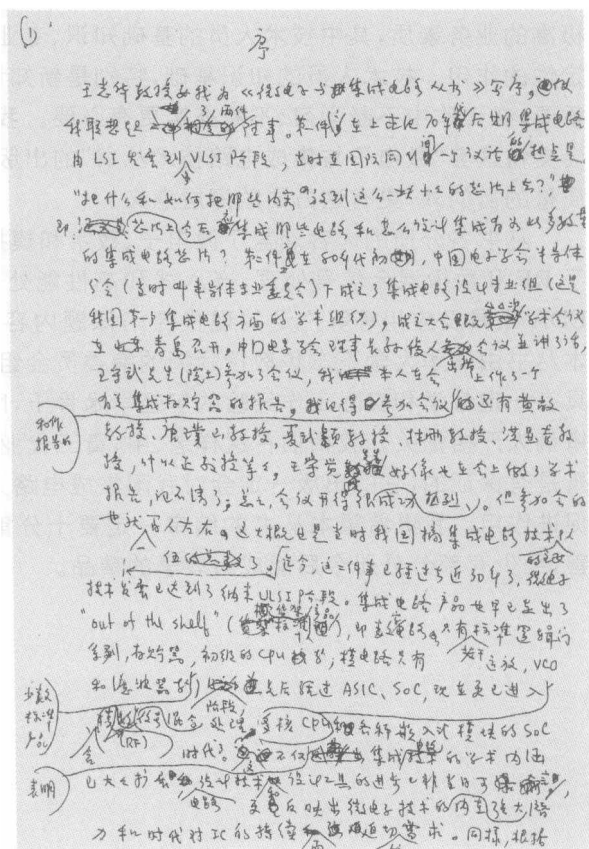 (1)
序
王志华教授要我为《微电子与集成电路丛书》写序，使
我联想起了两件往事。第一件是在上世纪70年代后期集成电路
由LSI发展到VLSI阶段，当时在国际同行间一个议论的热点是
"把什么和如何把那些内容放到这么一块小小的芯片上去？"，
即芯片上应集成那些电路和怎么设计集成有为此多数量
的集成电路芯片？第二件是在80年代初期，中国电子学会半导体
分会（当时叫半导体专业委员会）下成立了集成电路设计专业组（这是
我国第一个集成电路方面的学术组织），成立大会暨学术会议
在山东青岛召开，中国电子学会理事长孙俊人出席会议并讲了话，
王守武先生（院士）参加了会议，我本人在会上作了一个
有关集成存贮器的报告。我记得参加会议和作报告的还有黄敞
教授、唐璞山教授、夏武颖教授、林雨教授、洪先龙教
授，叶以正教授等等，王学觉好像也在会上做了学术
报告，记不清了，总之，会议开得很成功热烈。但参加会的
也就百人左右，这大概也是当时我国搞集成电路技术队
伍的总数了。迄今，这二件事已经过去近30年了，微电子
技术发展已达到了纳米ULSI阶段。集成电路产品也早已走出了
"out of the shelf"（），即数字电路只有标准逻辑门
系列，存贮器，初级的CPU教学，模电路只有运放，VCO
和滤波器等少数标准产品阶段，先后经过ASIC、SoC，现在更已进入
含模拟信号(RF)混合处理，多核CPU和各种嵌入式模块的SoC
时代了。这不仅表明集成电路技术的学术内涵
已大大扩展，电路设计技术、设计工具的进步已非昔日可，
更反映出微电子技术的强大活
力和时代对IC的持续而迫切需求。同样，根据